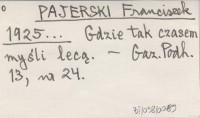 PAJERSKI Franciszek
1925... Gdzie tak czasem
myśli lecą. – Gaz. Podh.
13, nr 24.